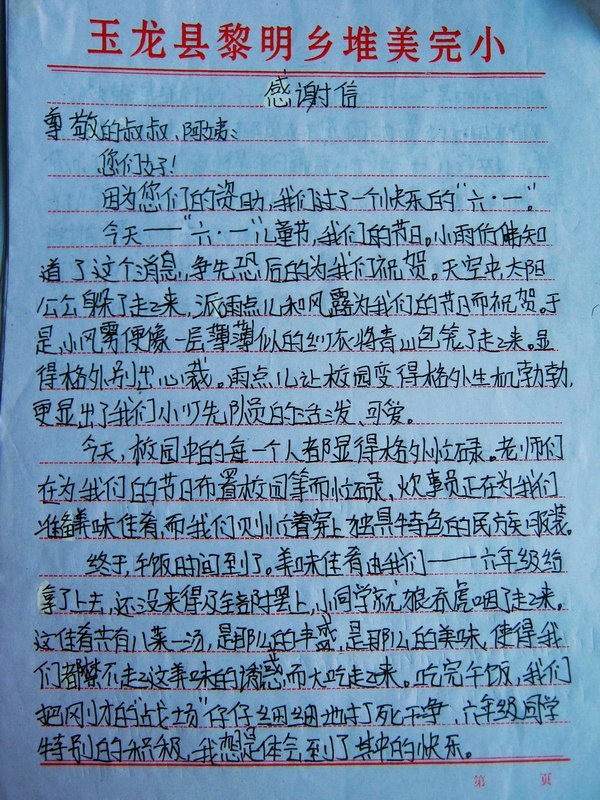 玉龙县黎明乡堆美完小
感谢信
尊敬的叔叔、阿姨：
您们好！
因为您们的资助，我们过了一个快乐的“六·一”。
今天——“六·一”儿童节，我们的节日。小雨仿佛知
道了这个消息，争先恐后的为我们祝贺。天空中，太阳
公公躲了起来，派雨点儿和风雾为我们的节日而祝贺。于
是，小风雾便像一层薄薄似的纱衣将青山包笼了起来。显
得格外别出心裁。雨点儿让校园变得格外生机勃勃，
更显出了我们小叮先队员的活泼、可爱。
今天，校园中的每一个人都显得格外忙碌。老师们
在为我们的节日布置校园等而忙碌，炊事员正在为我们
准备美味佳肴，而我们则忙着穿上独具特色的民族服装。
终于，午饭时间到了。美味佳肴由我们——六年级给
拿了上去，还没来得及全部摆上，小同学就狼吞虎咽了起来。
这佳肴共有八菜一汤，是那么的丰盛，是那么的美味，使得我
们都禁不起这美味的诱惑而大吃起来。吃完午饭，我们
把刚才的“战场”仔仔细细地打扫干净，六年级同学
特别的积极，我想是体会到了其中的快乐。
第 页